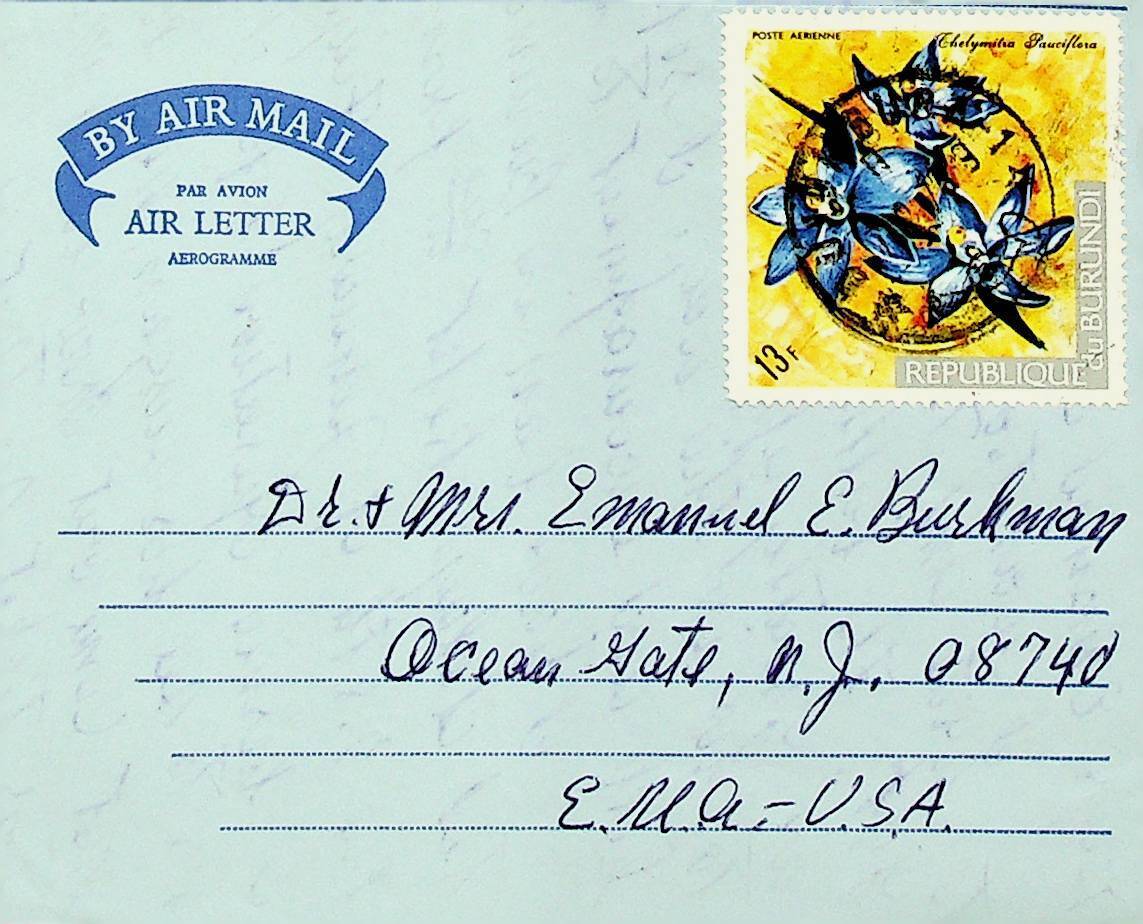 BY AIR MAIL
PAR AVION
AIR LETTER
AEROGRAMME
POSTE AERIENNE
Thelymitra Pauciflora
13F
REPUBLIQUE
du BURUNDI
Dr. & Mrs. Emanuel E. Burkman
Ocean Gate, N.J. 08740
E.U.A. - U.S.A.